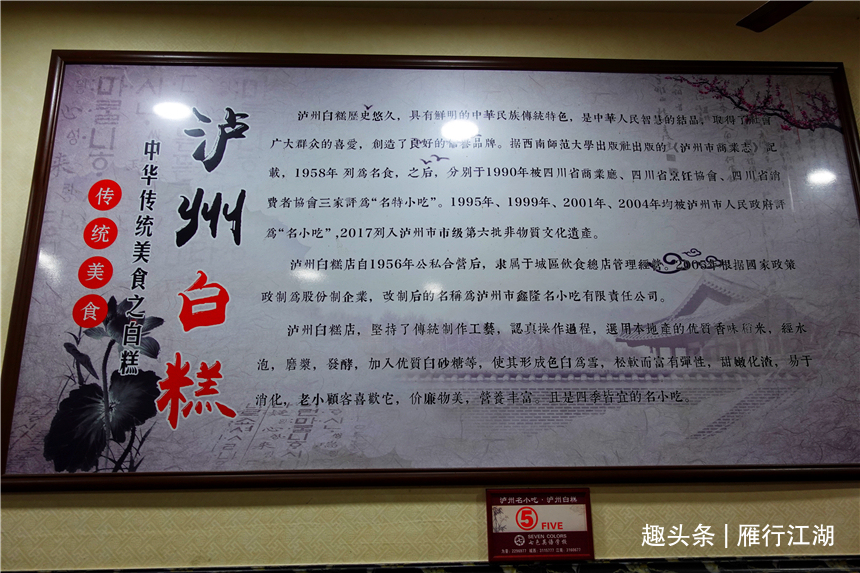 泸州白糕
中华传统美食之白糕
传统美食
泸州白糕歷史悠久，具有鮮明的中華民族傳統特色，是中華人民智慧的結晶，取得了社會
广大群众的喜愛，創造了良好的 品牌。据西南师范大學出版社出版的《泸州市商業志》記
載，1958年 列爲名食，之后，分别于1990年被四川省商業廳、四川省烹饪協會、四川省消
费者協會三家評爲“名特小吃”。1995年、1999年、2001年、2004年均被泸州市人民政府評
爲“名小吃”,2017列入泸州市市级第六批非物質文化遺產。
泸州白糕店自1956年公私合營后，隶属于城區飲食總店管理經營。2003年根据國家政策
政制爲股份制企業，改制后的名稱爲泸州市鑫隆名小吃有限責任公司。
泸州白糕店，堅持了傳統制作工藝，認真操作過程，選用本地產的优質香味稻米，經水
泡，磨漿，發酵，加入优質白砂糖等，使其形成色白爲雪，松軟而富有彈性，甜嫩化渣，易于
消化，老小顧客喜歡它，价廉物美，營養丰富。且是四季皆宜的名小吃。
泸州名小吃·泸州白糕
5 FIVE
SEVEN COLORS
七色美语学校
趣头条 | 雁行江湖